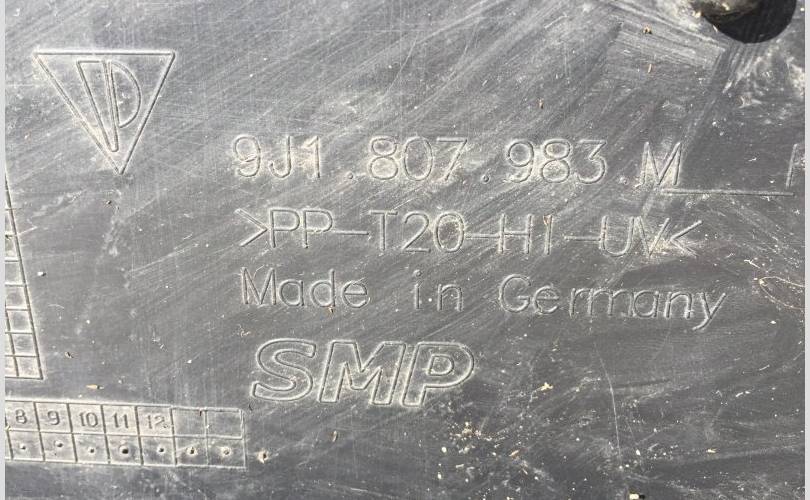 9J1.807.983.M
>PP-T20-HI-UV<
Made in Germany
SMP
8 9 10 11 12